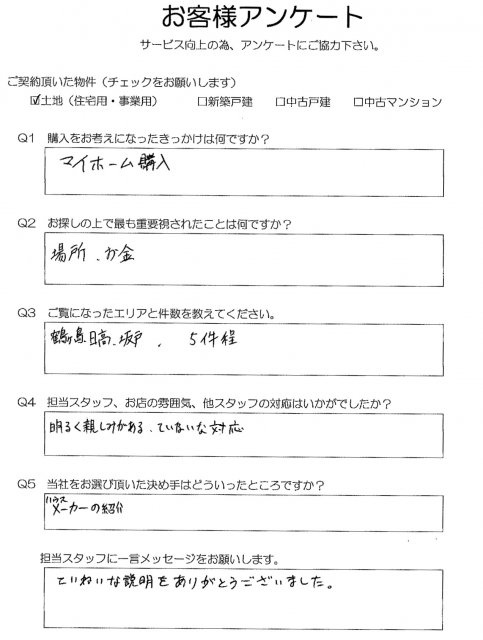 お客様アンケート
サービス向上の為、アンケートにご協力下さい。
ご契約頂いた物件（チェックをお願いします）
☑土地（住宅用・事業用） □新築戸建 □中古戸建 □中古マンション
Q1 購入をお考えになったきっかけは何ですか？
マイホーム購入
Q2 お探しの上で最も重要視されたことは何ですか？
場所、お金
Q3 ご覧になったエリアと件数を教えてください。
鶴ヶ島、日高、坂戸、 5件程
Q4 担当スタッフ、お店の雰囲気、他スタッフの対応はいかがでしたか？
明るく親しみがある、ていねいな対応
Q5 当社をお選び頂いた決め手はどういったところですか？
ハウスメーカーの紹介
担当スタッフに一言メッセージをお願いします。
ていねいな説明をありがとうございました。